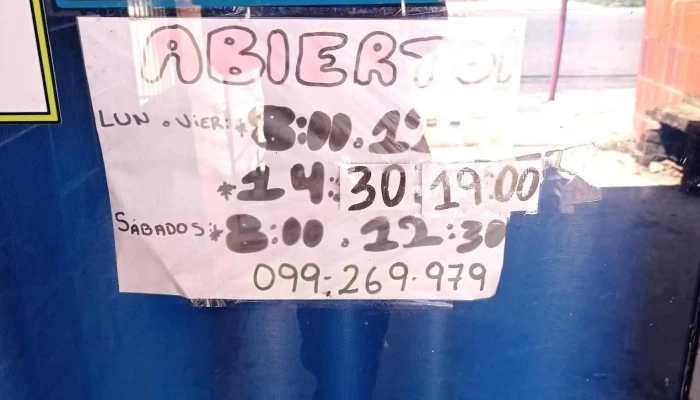 ABIERTO!
LUN . VIER: * 8:00 . 12
* 14:30 19:00
SÁBADOS: * 8:00 . 12:30
099-269.979